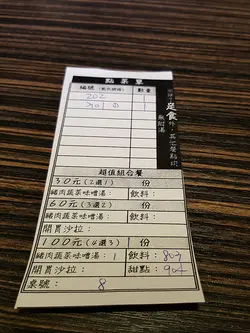 點菜單
編號 數量
202 1
301 ①
超值組合餐
30元(2選1) 份
豬肉蔬菜味噌湯: 飲料:
60元(3選2) 份
豬肉蔬菜味噌湯: 飲料:
開胃沙拉:
100元(4選3) 份
豬肉蔬菜味噌湯: 1 飲料: 803
開胃沙拉: 甜點: 904
桌號: 8
定食外,其他餐點均
無附湯